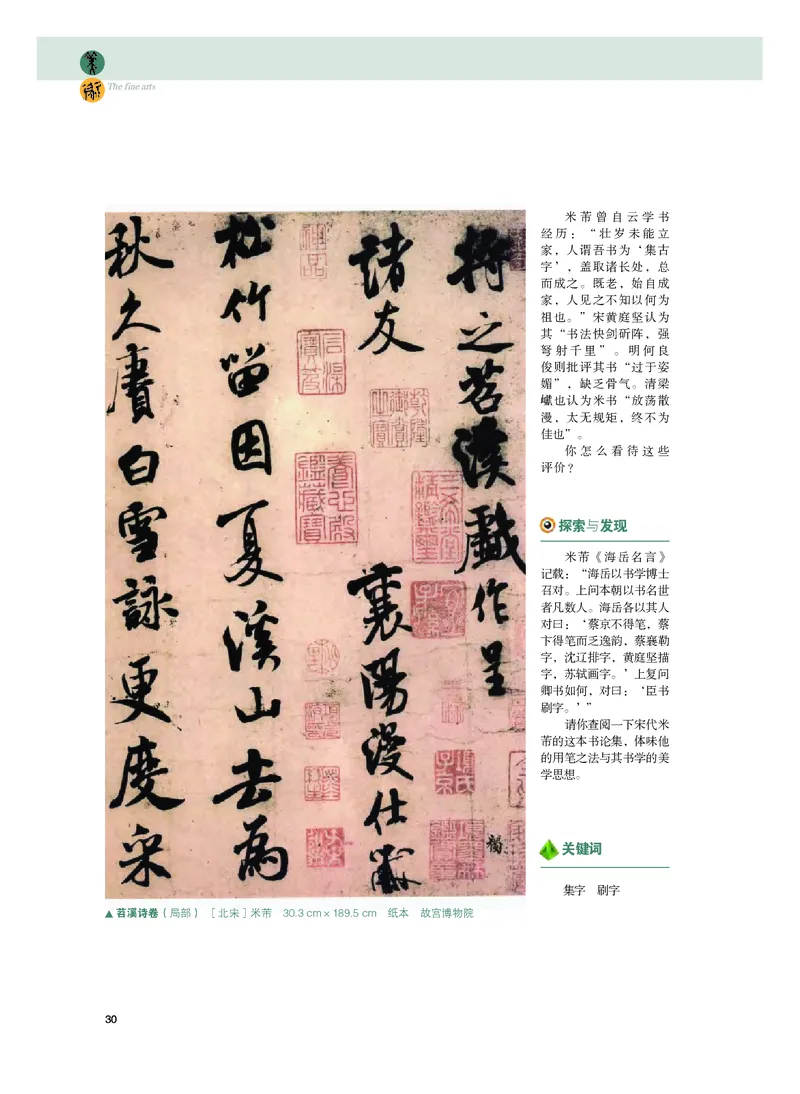 The fine arts
将之苕溪戏作呈
诸友
襄阳漫仕黻
松竹留因夏溪山去为
秋久赓白雪詠更度采
米芾曾自云学书
经历：“壮岁未能立
家，人谓吾书为‘集古
字’，盖取诸长处，总
而成之。既老，始自成
家，人见之不知以何为
祖也。”宋黄庭坚认为
其“书法快剑斫阵，强
弩射千里”。明何良
俊则批评其书“过于姿
媚”，缺乏骨气。清梁
𪩘也认为米书“放荡散
漫，太无规矩，终不为
佳也”。
你怎么看待这些
评价？
探索与发现
米芾《海岳名言》
记载：“海岳以书学博士
召对。上问本朝以书名世
者凡数人。海岳各以其人
对曰：‘蔡京不得笔，蔡
卞得笔而乏逸韵，蔡襄勒
字，沈辽排字，黄庭坚描
字，苏轼画字。’上复问
卿书如何，对曰：‘臣书
刷字。’”
请你查阅一下宋代米
芾的这本书论集，体味他
的用笔之法与其书学的美
学思想。
关键词
集字 刷字
▲苕溪诗卷（局部）［北宋］米芾 30.3 cm×189.5 cm 纸本 故宫博物院
30